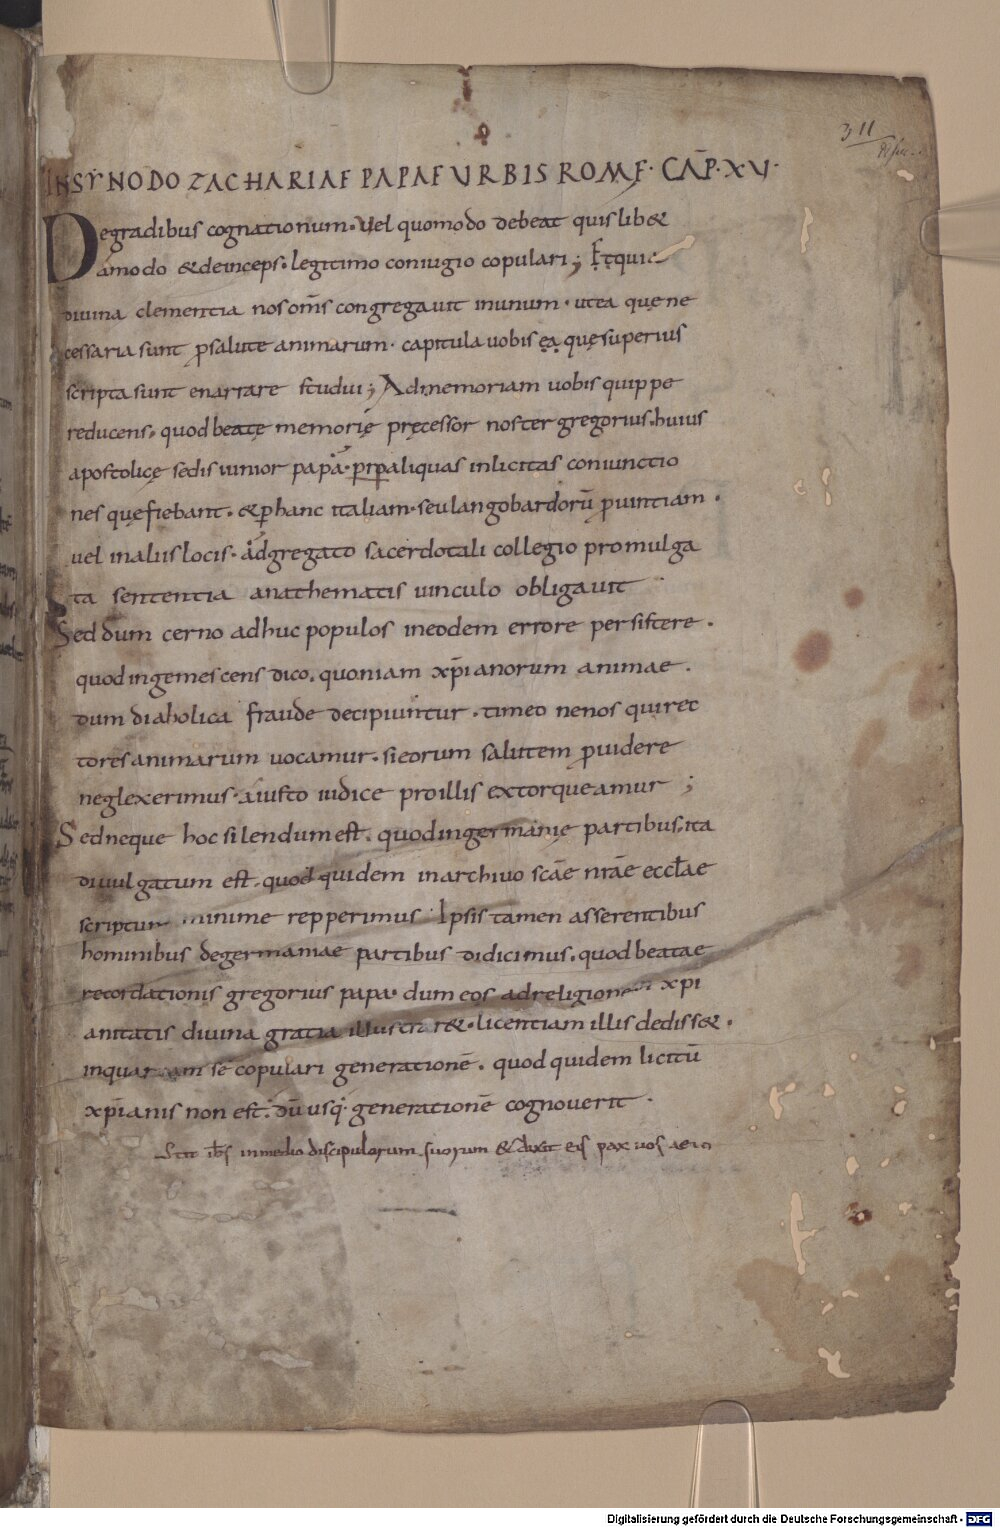 311
IN SYNODO ZACHARIAE PAPAE URBIS ROMAE · CAP̄ · XV ·
De gradibus cognationum · vel quomodo debeat quis lib&
amodo & deinceps · legitimo coniugio copulari ; Et quia
diuina clementia nos om̄s congregauit in unum · ut ea quę ne
cessaria sunt ꝑ salute animarum · capitula uobis ea quę superius
scripta sunt enarrare studui ; Ad memoriam uobis quippe
reducens · quod beatę memorię pręcessor noster gregorius · huius
apostolicę sedis iunior papa · aliquas inlicitas coniunctio
nes quę fiebant · & ꝑ hanc italiam · seu langobardorū ꝓuintiam ·
uel in aliis locis · adgregato sacerdotali collegio promulga
ta sententia anathematis uinculo obligauit
Sed dum cerno adhuc populos in eodem errore persistere ·
quod ingemescens dico · quoniam xp̄ianorum animae ·
dum diabolica fraude decipiuntur · timeo ne nos qui rec
tores animarum uocamur · si eorum salutem ꝓuidere
neglexerimus · a iusto iudice pro illis extorqueamur ;
Sed neque hoc silendum est · quod in germanię partibus · ita
diuulgatum est · quod quidem in archiuo scāe nrāe eccłae
scriptum minime repperimus · Ipsis tamen asserentibus
hominibus de germaniae partibus didicimus · quod beatae
recordationis gregorius papa · dum eos ad religionem xpi
anitatis diuina gratia illustrar& · licentiam illis dediss& ·
in quartam se copulari generationē · quod quidem licitū
xp̄ianis non est · dū usq; generationē cognouerit ·
Stit ih̄s in medio discipulorum suorum & dixit eis pax uos
Digitalisierung gefördert durch die Deutsche Forschungsgemeinschaft - DFG